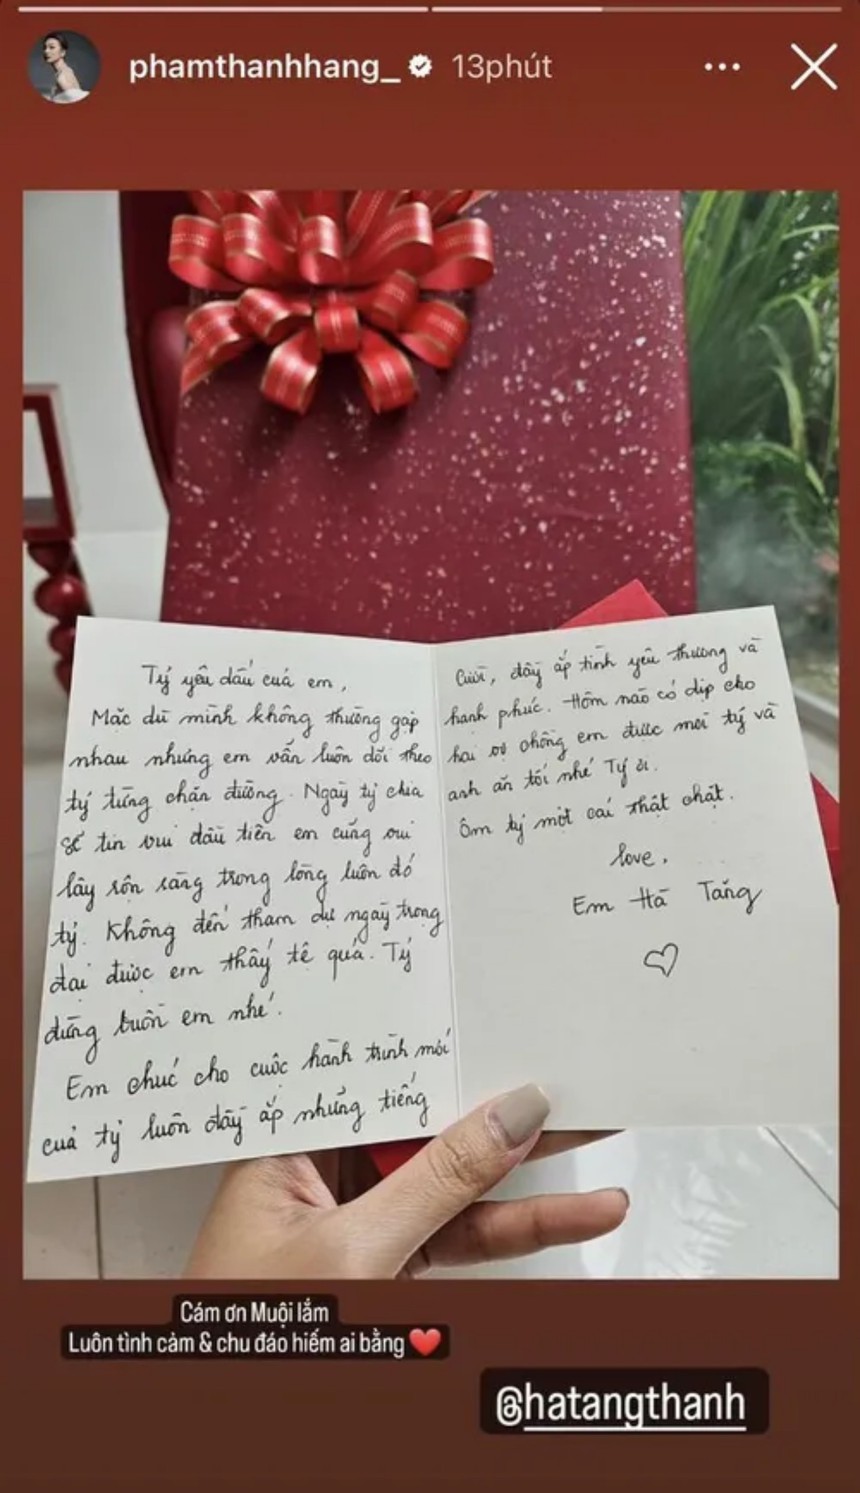 phamthanhhang_ 13phút
Tỷ yêu dấu của em,
Mặc dù mình không thường gặp
nhau nhưng em vẫn luôn dõi theo
tỷ từng chặn đường. Ngày tỷ chia
sẻ tin vui đầu tiên em cũng vui
lây rộn ràng trong lòng luôn đó
tỷ. Không đến tham dự ngày trọng
đại được em thấy tệ quá. Tỷ
đừng buồn em nhé.
Em chúc cho cuộc hành trình mới
của tỷ luôn đầy ắp những tiếng
cười, đầy ắp tình yêu thương và
hạnh phúc. Hôm nào có dịp cho
hai vợ chồng em được mời tỷ và
anh ăn tối nhé Tỷ ơi.
Ôm tỷ một cái thật chặt.
love,
Em Hà Tăng
Cám ơn Muội lắm
Luôn tình cảm & chu đáo hiếm ai bằng ❤️
@hatangthanh